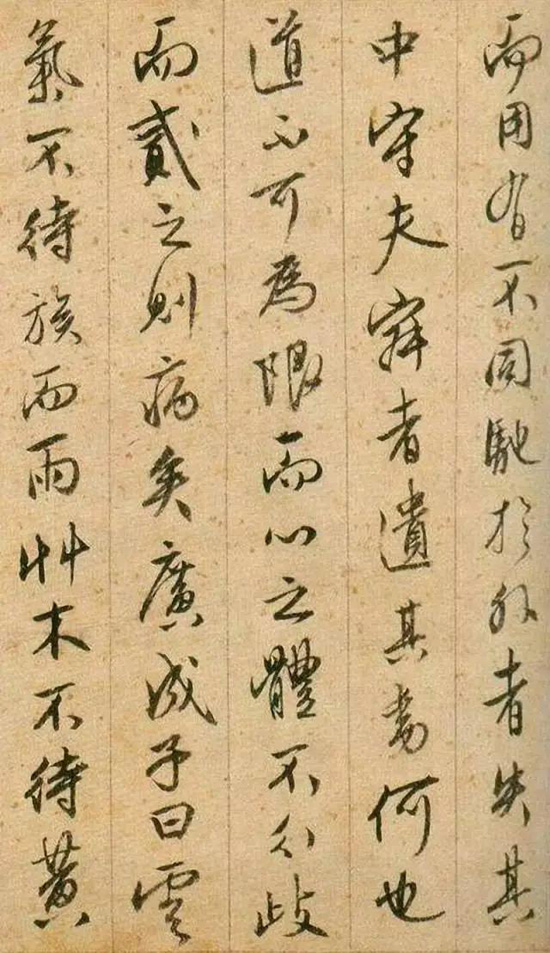 而用有不同馳於外者失其
中守夫寂者遺其何也
道不可為限而心之體不分歧
而貳之則病矣廣成子曰雲
氣不待族而雨艸木不待黃